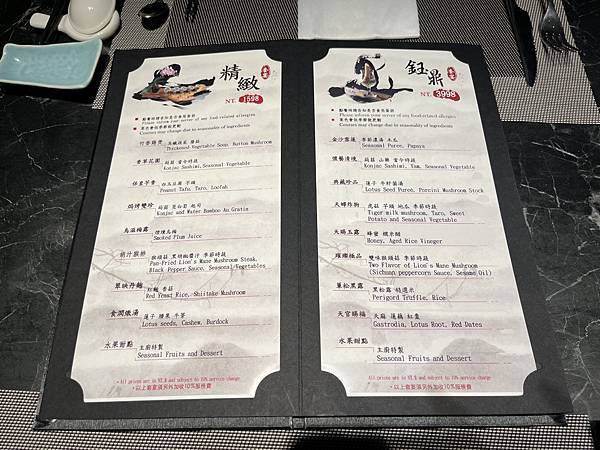 精緻
NT. 1598
點餐時請告知是否食物過敏
Please inform your server of any food-related allergies
菜色會依季節做更動
Courses may change due to seasonality of ingredients
Thickened Vegetable Soup, Button Mushroom
香草花園 蒟蒻 當令時蔬
Konjac Sashimi, Seasonal Vegetable
Peanut Tofu, Taro, Loofah
焗烤雙珍 蒟蒻 茭白筍 起司
Konjac and Water Bamboo Au Gratin
烏滋梅露 煙燻烏梅
Smoked Plum Juice
猴頭菇 黑胡椒醬汁 季節時蔬
Pan-Fried Lion's Mane Mushroom Steak,
Black Pepper Sauce, Seasonal Vegetables
紅麴 香菇
Red Yeast Rice, Shiitake Mushroom
食潤燉湯 蓮子 腰果 牛蒡
Lotus seeds, Cashew, Burdock
水果甜點 主廚特製
Seasonal Fruits and Dessert
All prices are in NT.$ and subject to 10% service charge
以上套宴須另外加收10%服務費
鈺鼎
NT. 3998
點餐時請告知是否食物過敏
Please inform your server of any food-related allergies
菜色會依季節做更動
Courses may change due to seasonality of ingredients
金沙霏蓮 季節濃湯 木瓜
Seasonal Puree, Papaya
蒟蒻 山藥 當令時蔬
Konjac Sashimi, Yam, Seasonal Vegetable
典藏珍品 蓮子 牛肝菌湯
Lotus Seed Puree, Porcini Mushroom Stock
天蟳炸物 虎菇 芋頭 地瓜 季節時蔬
Tiger milk mushroom, Taro, Sweet
Potato and Seasonal Vegetable
天賜玉露 蜂蜜 糯米醋
Honey, Aged Rice Vineger
璀璨極品 雙味猴頭菇 季節時蔬
Two Flavor of Lion's Mane Mushroom
(Sichuan peppercorn Sauce, Sesame Oil)
黑松露
Perigord Truffle, Rice
天官賜福 天麻 蓮藕 紅棗
Gastrodia, Lotus Root, Red Dates
水果甜點 主廚特製
Seasonal Fruits and Dessert
All prices are in NT.$ and subject to 10% service charge
以上套宴須另外加收10%服務費